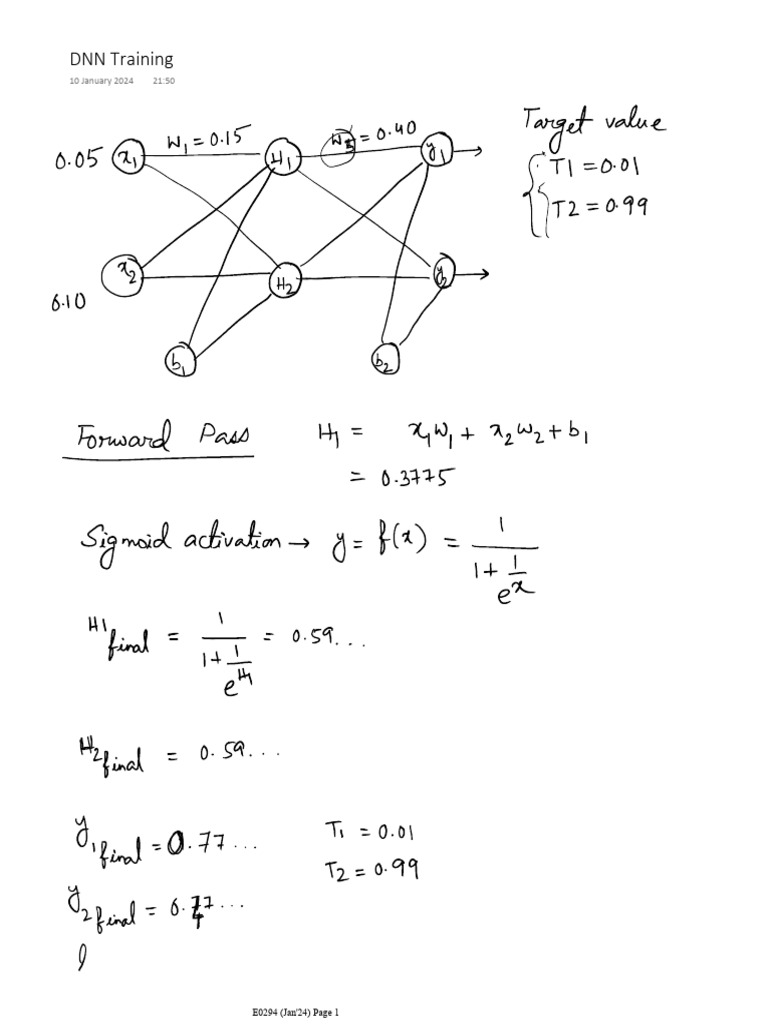 DNN Training
10 January 2024 21:50
Target value
W₁ = 0.15
W₅ = 0.40
0.05 x₁ H₁ y₁
T1 = 0.01
T2 = 0.99
x₂ H₂ y₂
0.10
b₁ b₂
Forward Pass H₁ = x₁w₁ + x₂w₂ + b₁
= 0.3775
Sigmoid activation → y = f(x) = 1 / (1 + 1/eˣ)
H1 final = 1 / (1 + 1/e^H₁) = 0.59...
H2 final = 0.59...
y₁ final = 0.77... T₁ = 0.01
T2 = 0.99
y₂ final = 0.77...
E0294 (Jan'24) Page 1